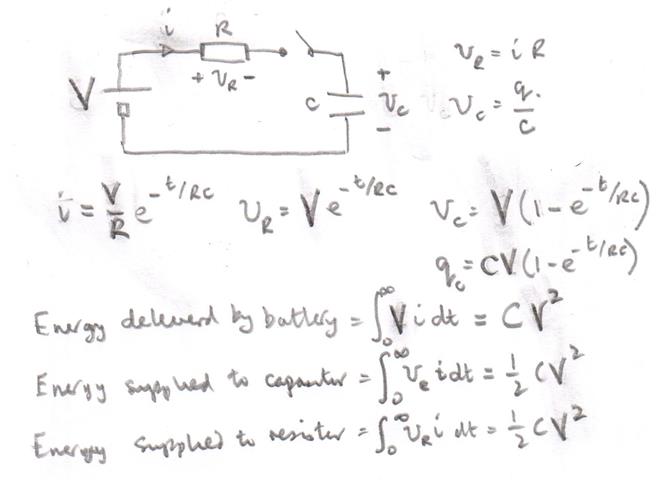 i R
+ v_R −
V
C
+
v_c
−
v_R = i R
v_c = q/c
i = V/R e^{-t/RC} v_R = V e^{-t/RC} v_c = V(1-e^{-t/RC})
q_c = CV(1-e^{-t/RC})
Energy delivered by battery = ∫₀^∞ V i dt = C V²
Energy supplied to capacitor = ∫₀^∞ v_c i dt = ½ CV²
Energy supplied to resistor = ∫₀^∞ v_R i dt = ½ CV²